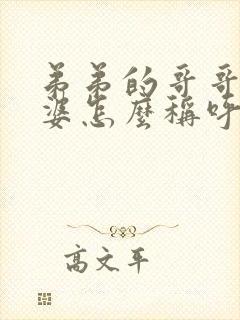 弟弟的哥哥
婆怎麼稱呼
高文平